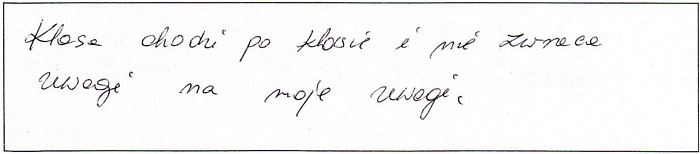 Klasa chodzi po klasie i nie zwraca
uwagi na moje uwagi.